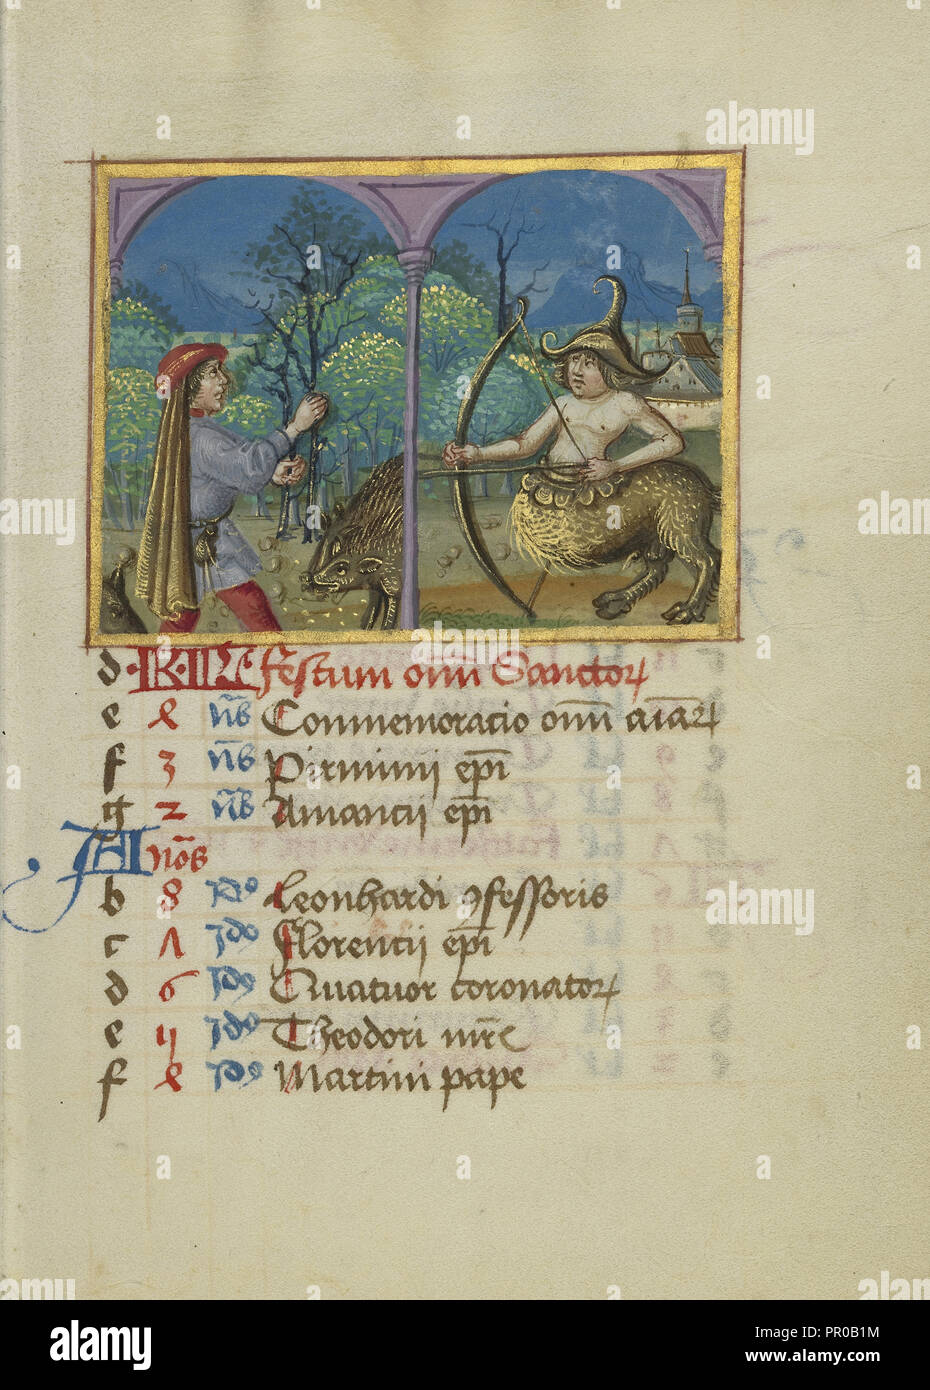 d · KL Festum om̄ Sanctoꝝ
e 4 nōs Commemoracio om̄ aīaꝝ
f 3 nōs Pirminij ep̄i
g 2 nōs Amancij ep̄i
A nōs
b 8 Jdꝰ Leonhardi ꝯfessoris
c Λ Jdꝰ Florencij ep̄i
d 6 Jdꝰ Quatuor coronatoꝝ
e Jdꝰ Theodori mr̄is
f Jdꝰ Martini pape
alamy
alamy
alamy
Image ID: PR0B1M
www.alamy.com